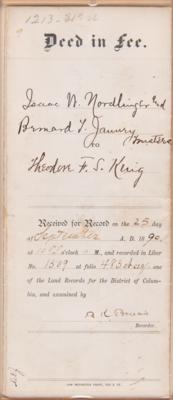 1213-21st
Deed in Fee.
Isaac N. Nordlinger and
Bernard T. Janney
Trustees
TO
Theodore F. S. King
Received for Record on the 25 day
of September A. D. 1890,
at o'clock M., and recorded in Liber
No. 1509 at folio 483 et seq., one
of the Land Records for the District of Colum-
bia, and examined by
Recorder.